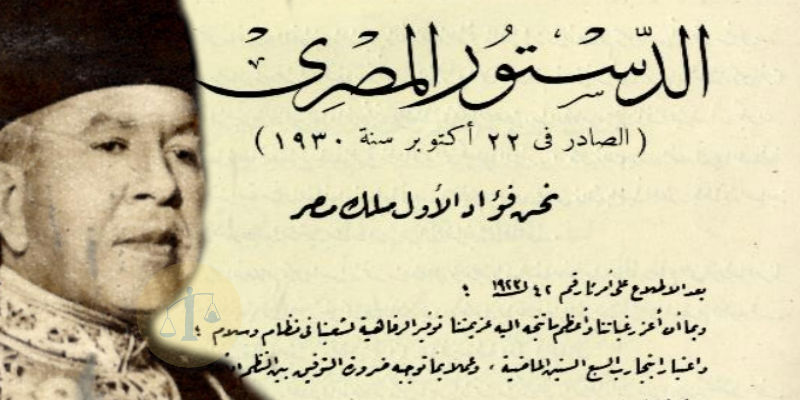 الدّستور المصرى
( الصادر فى ٢٢ أكتوبر سنة ١٩٣٠ )
نحن فؤاد الأول ملك مصر
بعد الاطلاع على أمرنا رقم ٤٢ لسنة ١٩٢٣ ؛
وبما أن أعز رغباتنا وأعظم ما تتجه اليه عزيمتنا توفير الرفاهية لشعبنا فى نظام وسلام ؛
واعتبارا بتجارب السبع السنين الماضية ، وعملا بما توجبه ضرورة التوفيق بين النظم